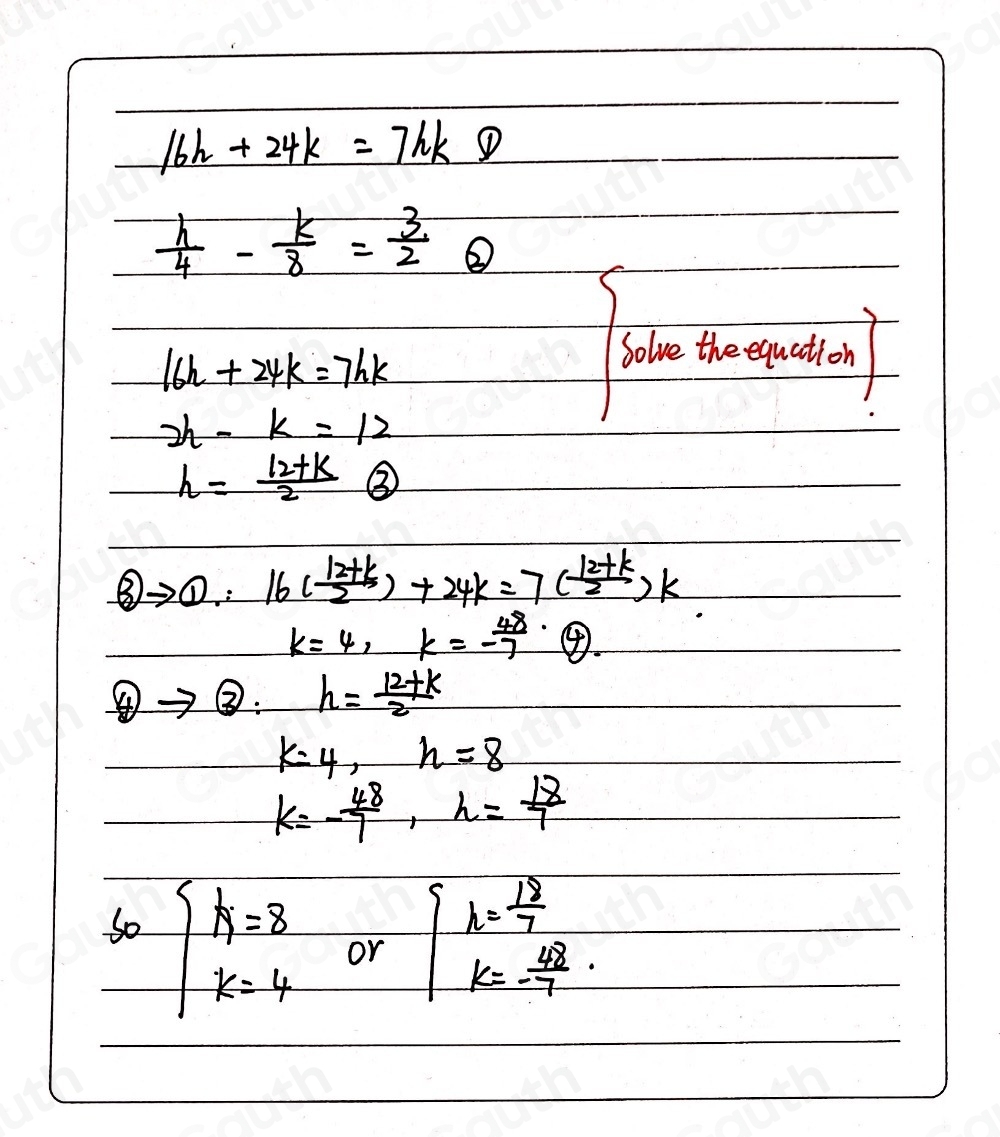 16h + 24k = 7hk ①
h/4 - k/8 = 3/2 ②
Solve the equation
16h + 24k = 7hk
2h - k = 12
h = (12+k)/2 ③
③→①: 16((12+k)/2) + 24k = 7((12+k)/2)k
k = 4, k = -48/7 ④.
④ → ③: h = (12+k)/2
k = 4, h = 8
k = -48/7, h = 18/7
so { h = 8 or { h = 18/7
k = 4 k = -48/7.
Gauth